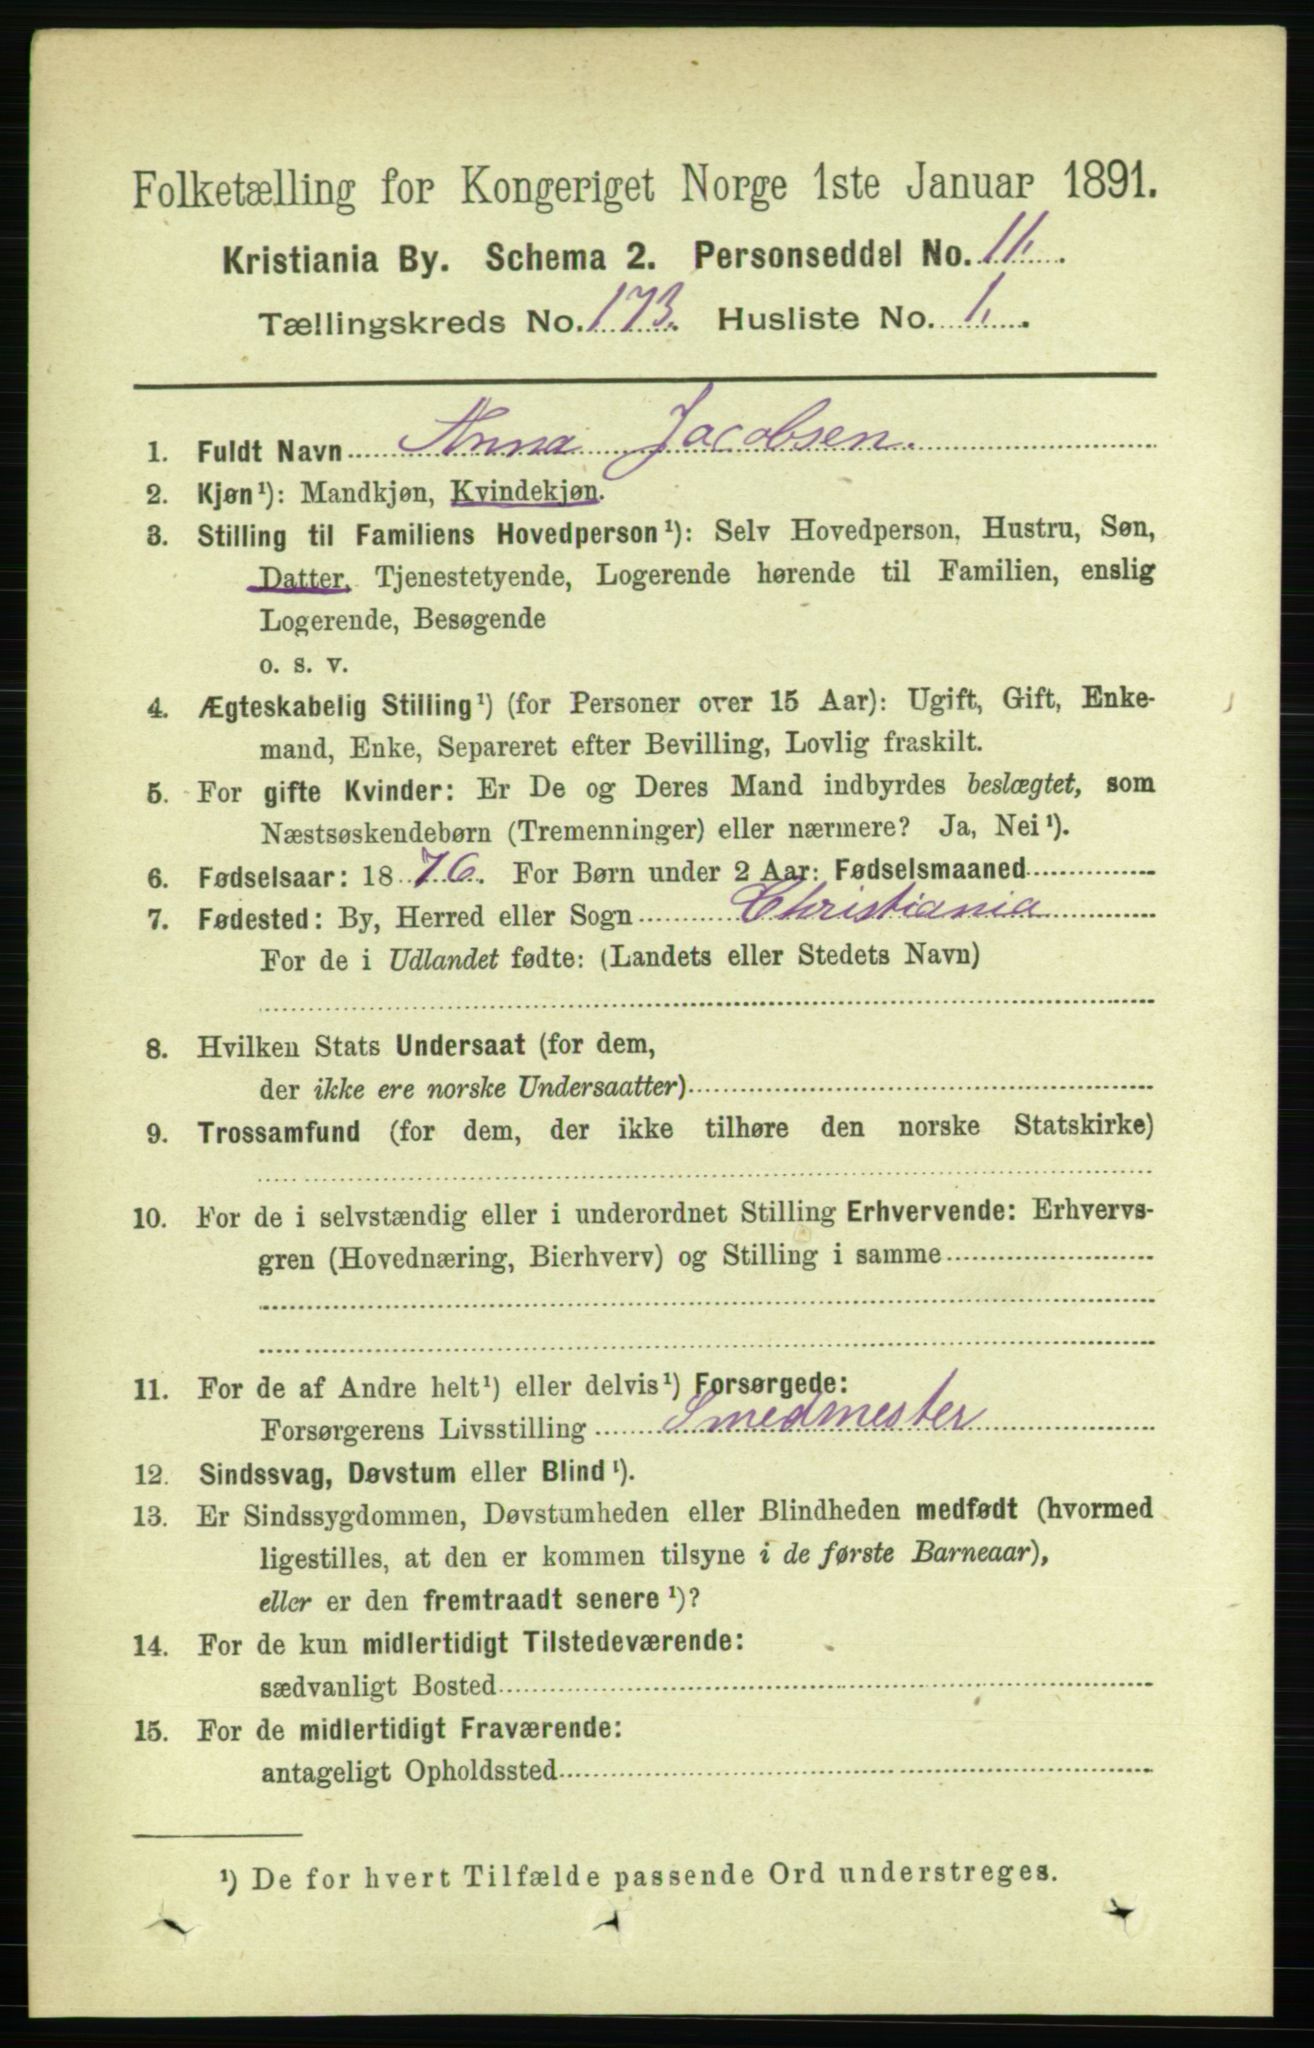 Folketælling for Kongeriget Norge 1ste Januar 1891.
Kristiania By. Schema 2. Personseddel No. 11.
Tællingskreds No. 173. Husliste No. 1.
1. Fuldt Navn Anna Jacobsen.
2. Kjøn¹): Mandkjøn, Kvindekjøn.
3. Stilling til Familiens Hovedperson¹): Selv Hovedperson, Hustru, Søn,
Datter, Tjenestetyende, Logerende hørende til Familien, enslig
Logerende, Besøgende
o. s. v.
4. Ægteskabelig Stilling¹) (for Personer over 15 Aar): Ugift, Gift, Enke-
mand, Enke, Separeret efter Bevilling, Lovlig fraskilt.
5. For gifte Kvinder: Er De og Deres Mand indbyrdes beslægtet, som
Næstsøskendebørn (Tremenninger) eller nærmere? Ja, Nei¹).
6. Fødselsaar: 1876. For Børn under 2 Aar: Fødselsmaaned
7. Fødested: By, Herred eller Sogn Christiania
For de i Udlandet fødte: (Landets eller Stedets Navn)
8. Hvilken Stats Undersaat (for dem,
der ikke ere norske Undersaatter)
9. Trossamfund (for dem, der ikke tilhøre den norske Statskirke)
10. For de i selvstændig eller i underordnet Stilling Erhvervende: Erhvervs-
gren (Hovednæring, Bierhverv) og Stilling i samme
11. For de af Andre helt¹) eller delvis¹) Forsørgede:
Forsørgerens Livsstilling Smedmester
12. Sindssvag, Døvstum eller Blind¹).
13. Er Sindssygdommen, Døvstumheden eller Blindheden medfødt (hvormed
ligestilles, at den er kommen tilsyne i de første Barneaar),
eller er den fremtraadt senere¹)?
14. For de kun midlertidigt Tilstedeværende:
sædvanligt Bosted
15. For de midlertidigt Fraværende:
antageligt Opholdssted
¹) De for hvert Tilfælde passende Ord understreges.